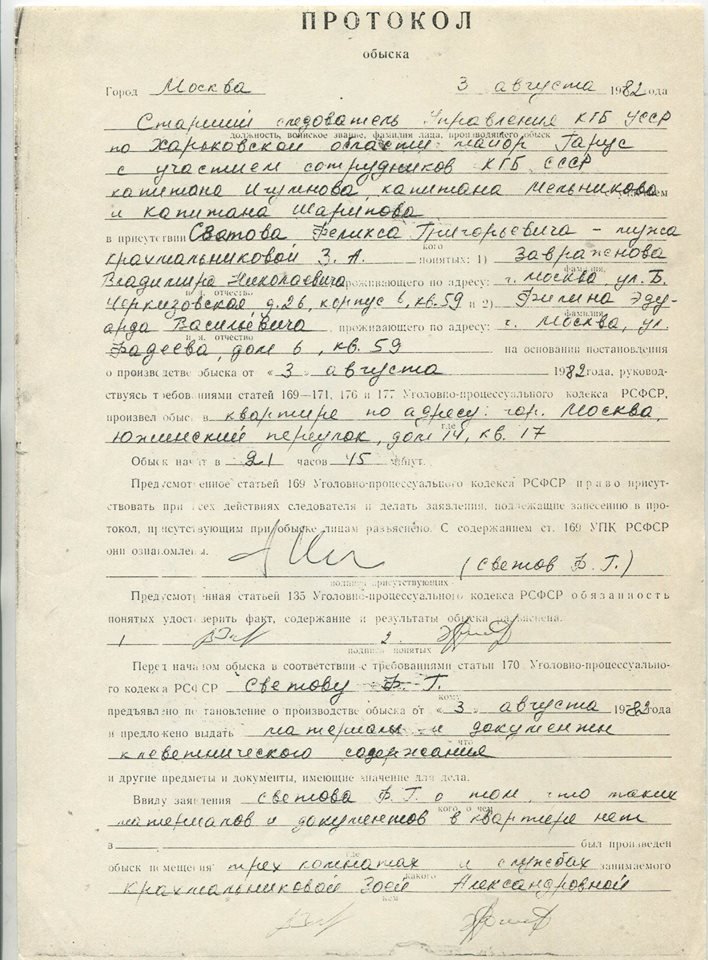 ПРОТОКОЛ
обыска
Город Москва 3 августа 1982 года
Старший следователь Управления КГБ УССР
должность, воинское звание, фамилия лица, производящего обыск
по Харьковской области майор Гарус
с участием сотрудников КГБ СССР
капитана Игумнова, капитана Мельникова
и капитана Шарипова
в присутствии Светова Феликса Григорьевича – мужа
кого
Крахмальниковой З.А. понятых: 1) Завраженова
фамилия,
Владимира Николаевича проживающего по адресу: г. Москва, ул. Б.
и., отчество
Черкизовская д. 26, корпус 6, кв. 59 и 2) Филина Эду-
фамилия
арда Васильевича, проживающего по адресу: г. Москва, ул.
и., отчество
Фадеева, дом 6, кв. 59 на основании постановления
о производстве обыска от « 3 » августа 1982 года, руковод-
ствуясь требованиями статей 169—171, 176 и 177 Уголовно-процессуального кодекса РСФСР,
произвел обыск в квартире по адресу: гор. Москва,
где
Южинский переулок, дом 14, кв. 17
Обыск начат в 21 часов 45 минут.
Предусмотренное статьей 169 Уголовно-процессуального кодекса РСФСР право присут-
ствовать при всех действиях следователя и делать заявления, подлежащие занесению в про-
токол, присутствующим при обыске лицам разъяснено. С содержанием ст. 169 УПК РСФСР
они ознакомлены.
(Светов Ф. Г.)
подписи присутствующих
Предусмотренная статьей 135 Уголовно-процессуального кодекса РСФСР обязанность
понятых удостоверить факт, содержание и результаты обыска разъяснена.
1 2.
подписи понятых
Перед началом обыска в соответствии с требованиями статьи 170 Уголовно-процессуально-
го кодекса РСФСР Светову Ф. Г.
кому
предъявлено постановление о производстве обыска от « 3 » августа 1982 года
и предложено выдать материалы и документы
что
клеветнического содержания
и другие предметы и документы, имеющие значение для дела.
Ввиду заявления Светова Ф. Г. о том, что таких
кого, о чем
материалов и документов в квартире нет
в был произведен
обыск помещения трех комнатах и службах занимаемого
какого
Крахмальниковой Зоей Александровной
кем